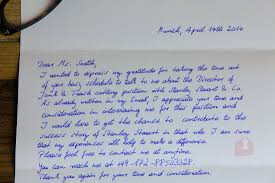 Munich, April 14th 2014
Dear Ms. Smith,
I wanted to express my gratitude for taking the time out
of your busy schedule to talk to me about the Director of
Tank & Trash cutting position with Stanley Stuart & Co.
As already written in my Email, I appreciate your time and
consideration in interviewing me for this position and
I would love to get the chance to contribute to the
success story of Stanley Stuart in that role. I am sure
that my experiences will help to make a difference.
Please feel free to contact me at anytime.
You can reach me at +49-172-88503328.
Thank you again for your time and consideration.